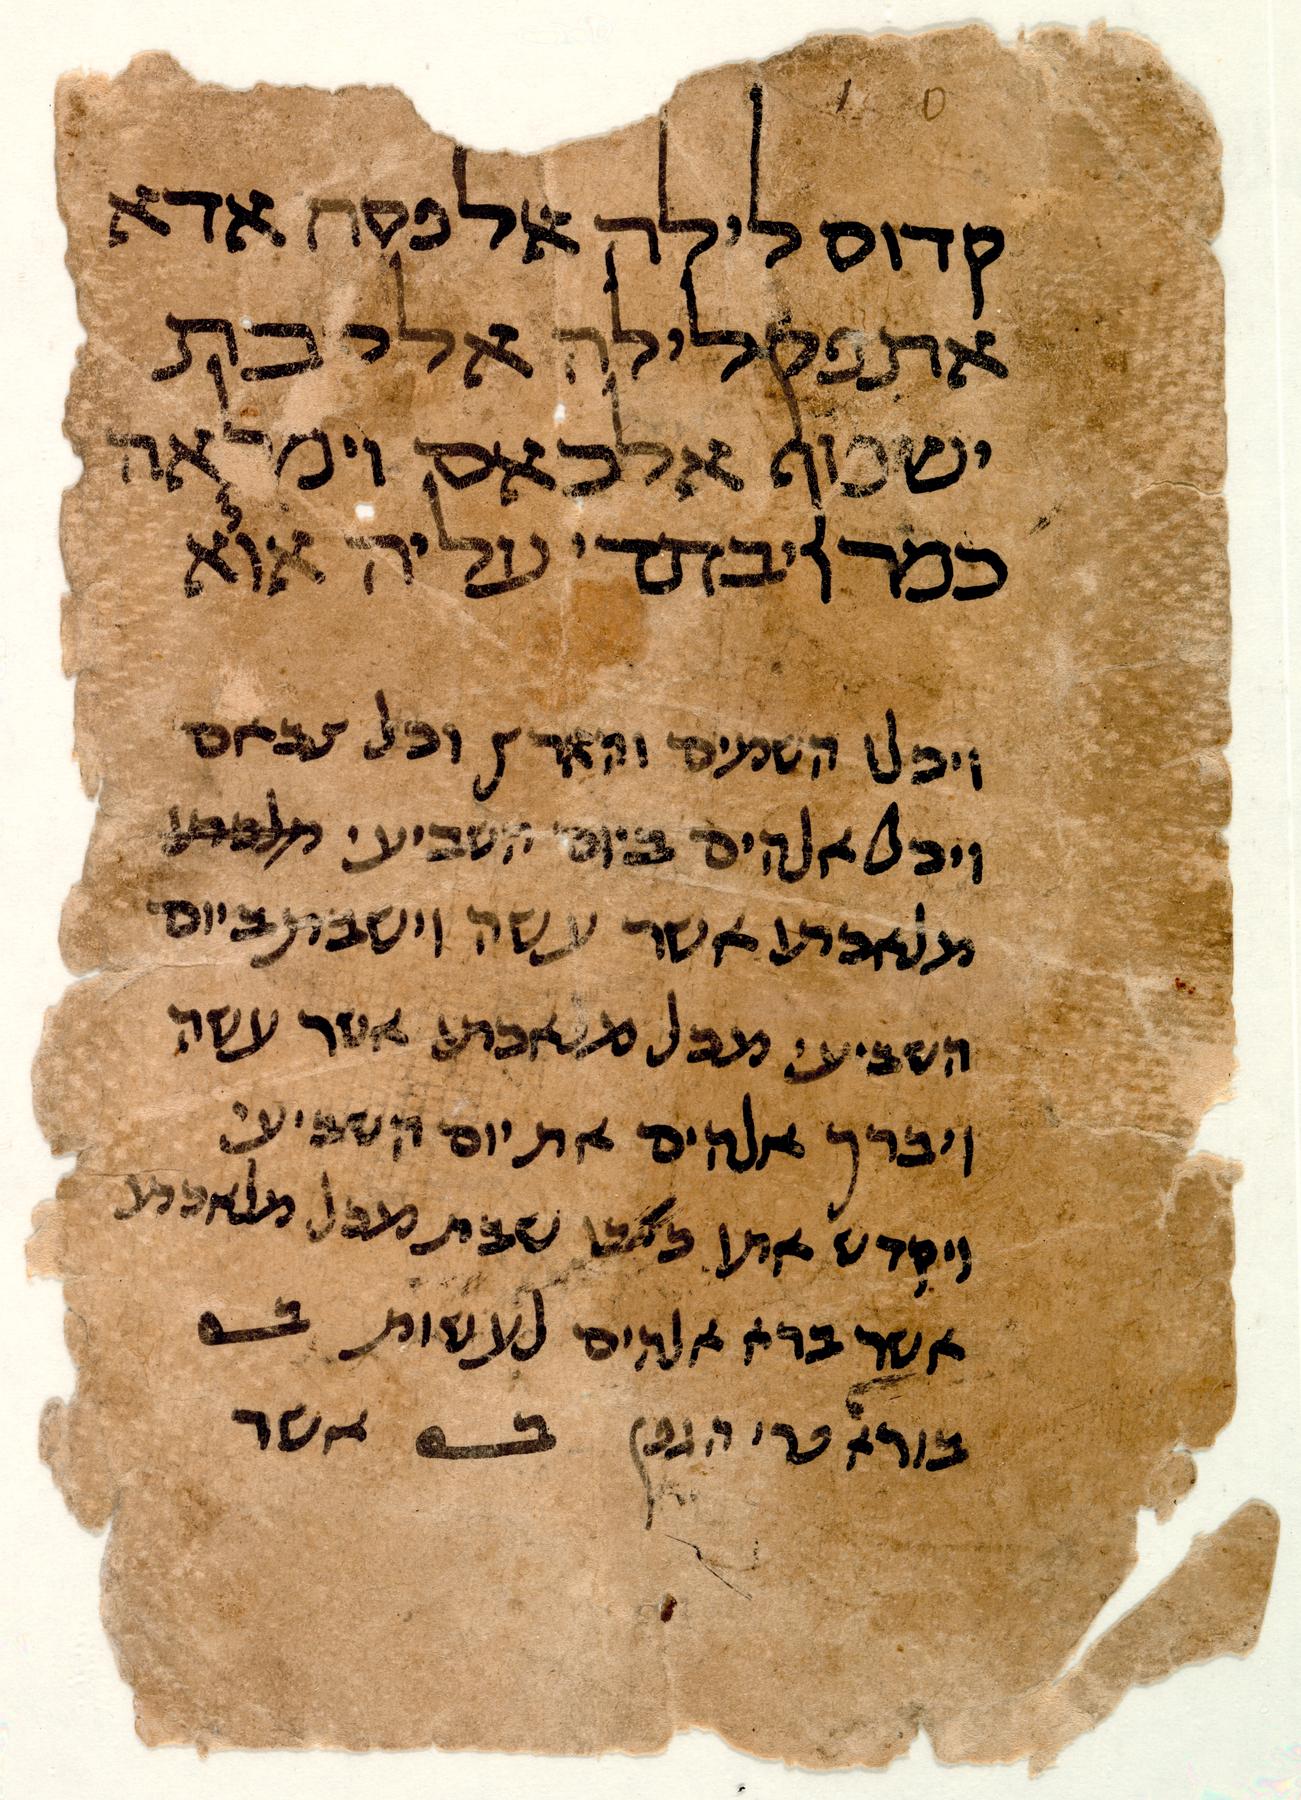 קדוס לילה אלפסח אדא
אתפק לילה אלסבת
ישטוף אלכאס וימלאה
כמר ויבתדי עליה אולא
ויכלו השמים והארץ וכל צבאם
ויכל אלהים ביום השביעי
מלאכתו אשר עשה וישבת ביום
השביעי מכל מלאכתו אשר עשה
ויברך אלהים את יום השביעי
ויקדש אתו כי בו שבת מכל מלאכתו
אשר ברא אלהים לעשות
בורא פרי הגפן אשר